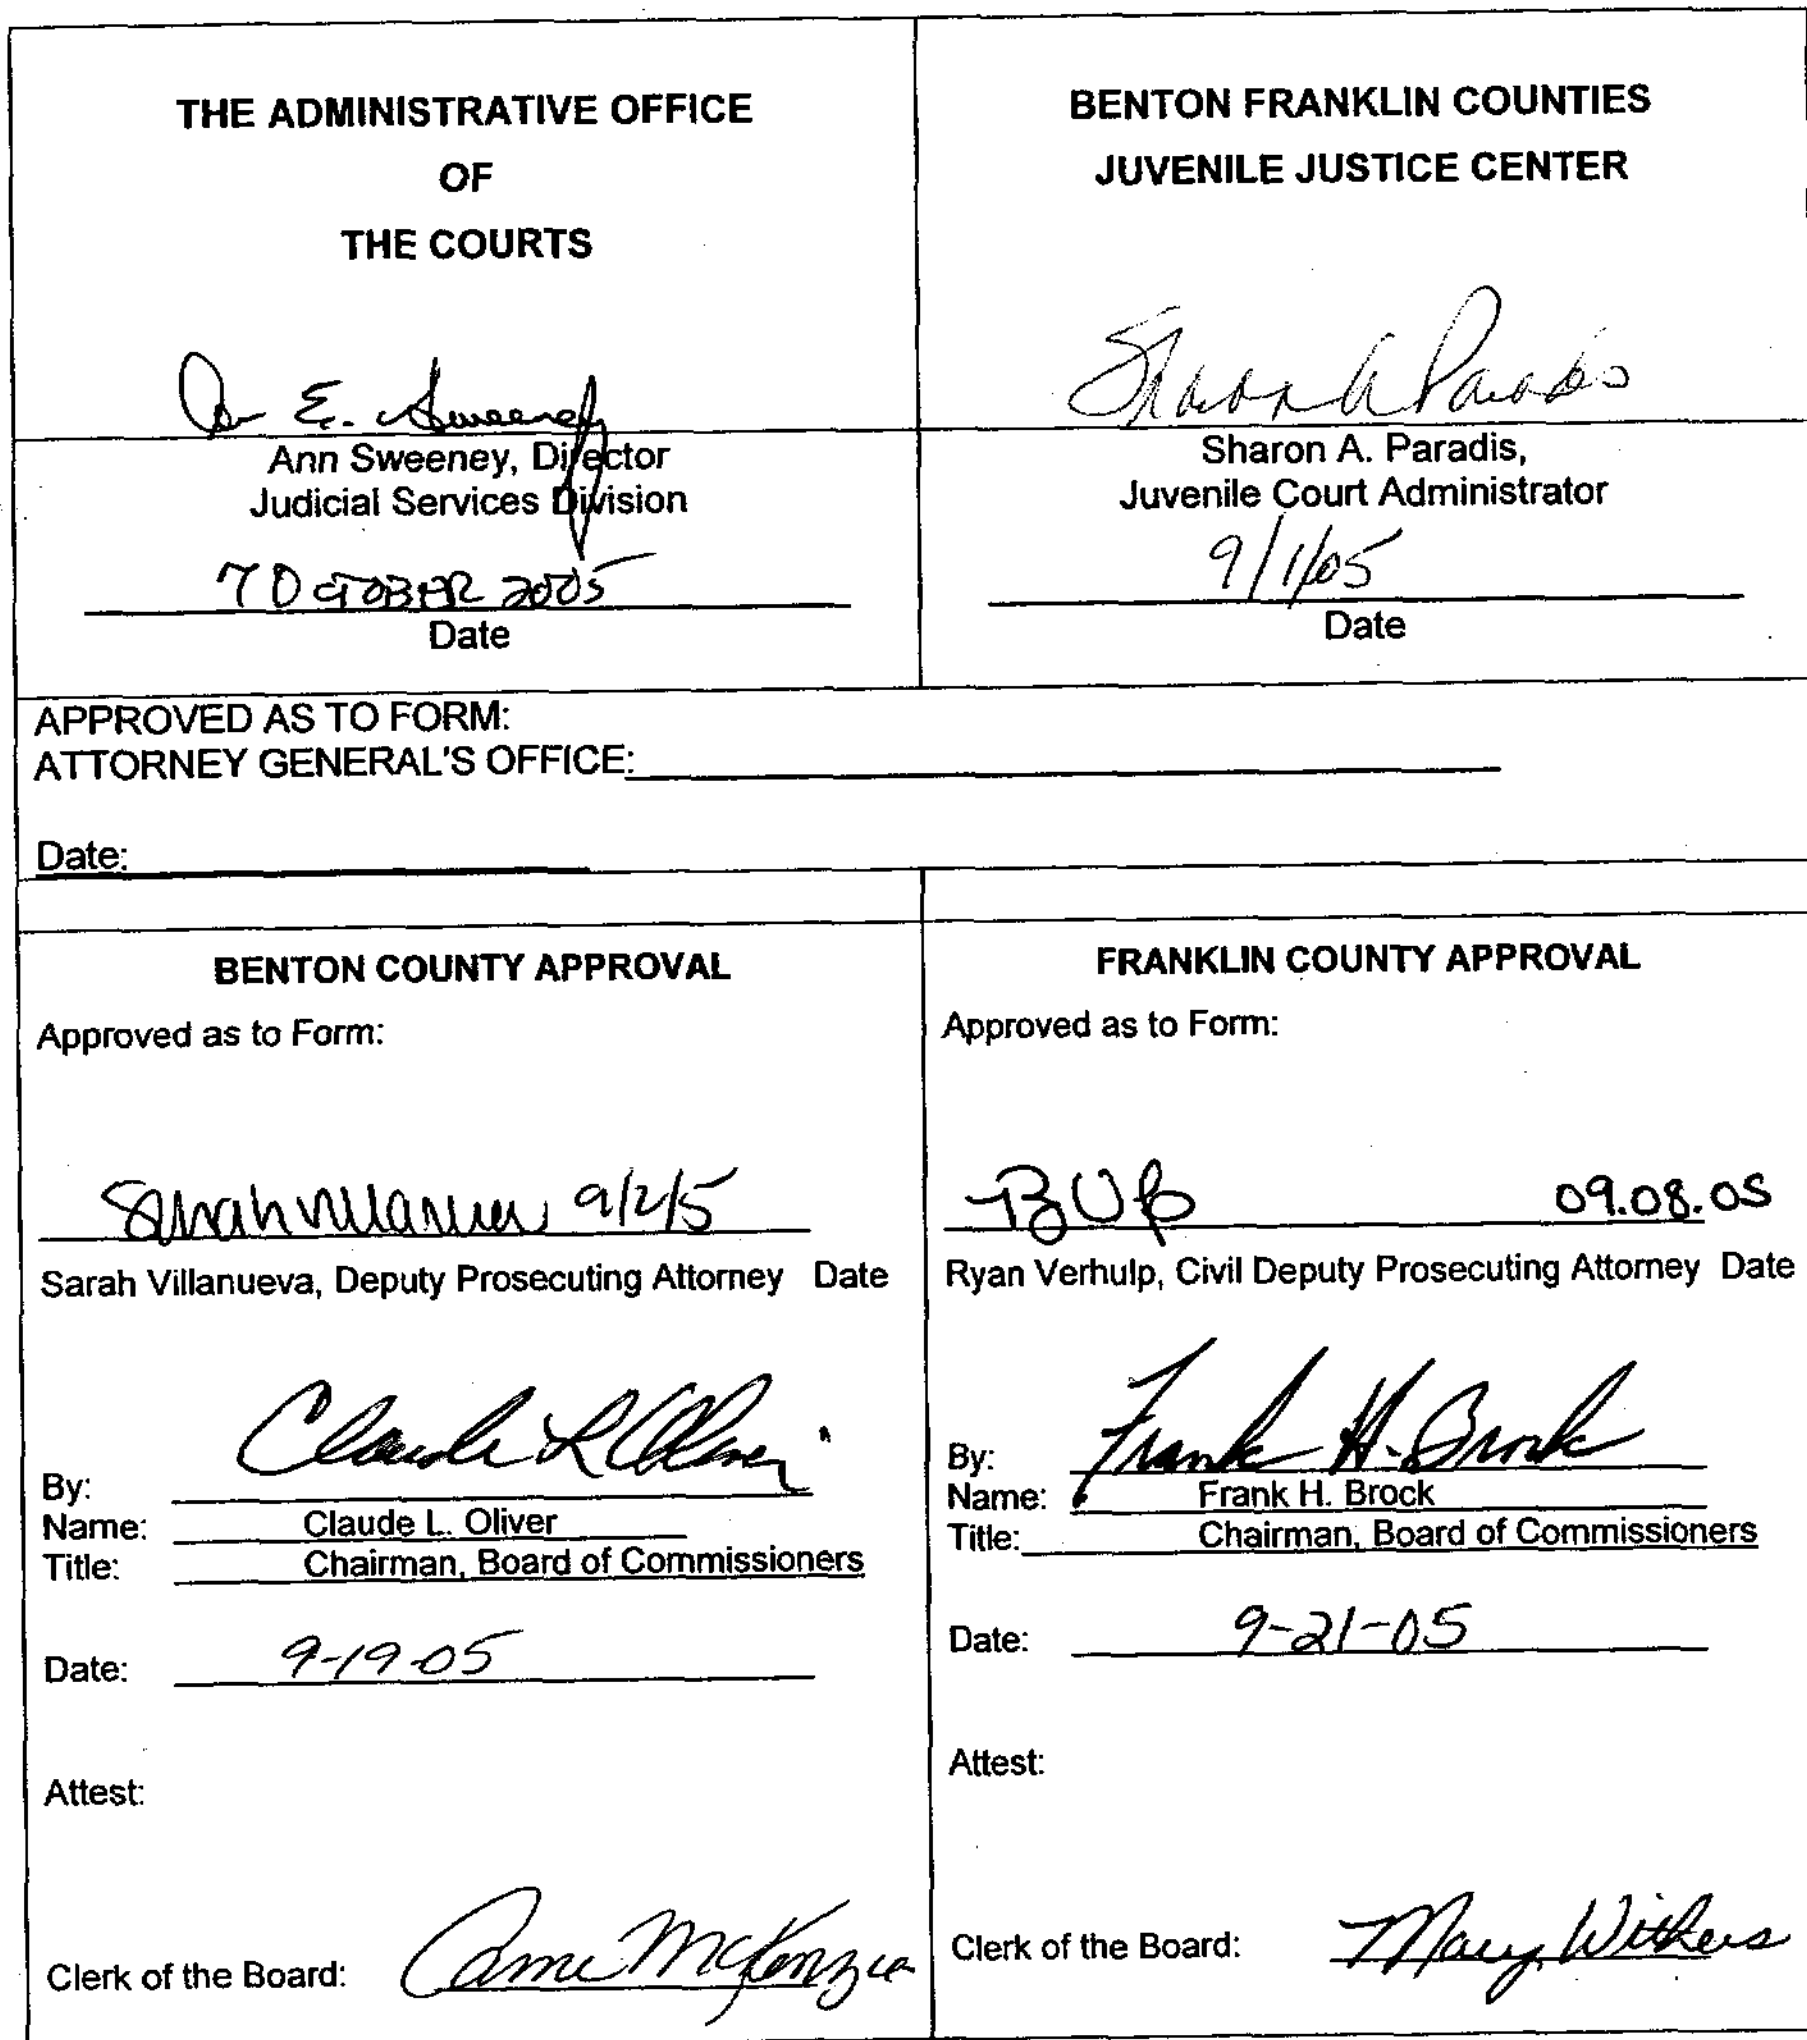 THE ADMINISTRATIVE OFFICE
OF
THE COURTS
E. Sweeney
Ann Sweeney, Director
Judicial Services Division
7 OCTOBER 2005
Date
BENTON FRANKLIN COUNTIES
JUVENILE JUSTICE CENTER
Sharon A Paradis
Sharon A. Paradis,
Juvenile Court Administrator
9/1/05
Date
APPROVED AS TO FORM:
ATTORNEY GENERAL'S OFFICE:
Date:
BENTON COUNTY APPROVAL
Approved as to Form:
Sarah Villanueva 9/2/5
Sarah Villanueva, Deputy Prosecuting Attorney Date
Claude L Oliver
By:
Name: Claude L. Oliver
Title: Chairman, Board of Commissioners
Date: 9-19-05
Attest:
Clerk of the Board: McKenzie
FRANKLIN COUNTY APPROVAL
Approved as to Form:
09.08.05
Ryan Verhulp, Civil Deputy Prosecuting Attorney Date
By: Frank H. Brock
Name: Frank H. Brock
Title: Chairman, Board of Commissioners
Date: 9-21-05
Attest:
Clerk of the Board: Mary Withers